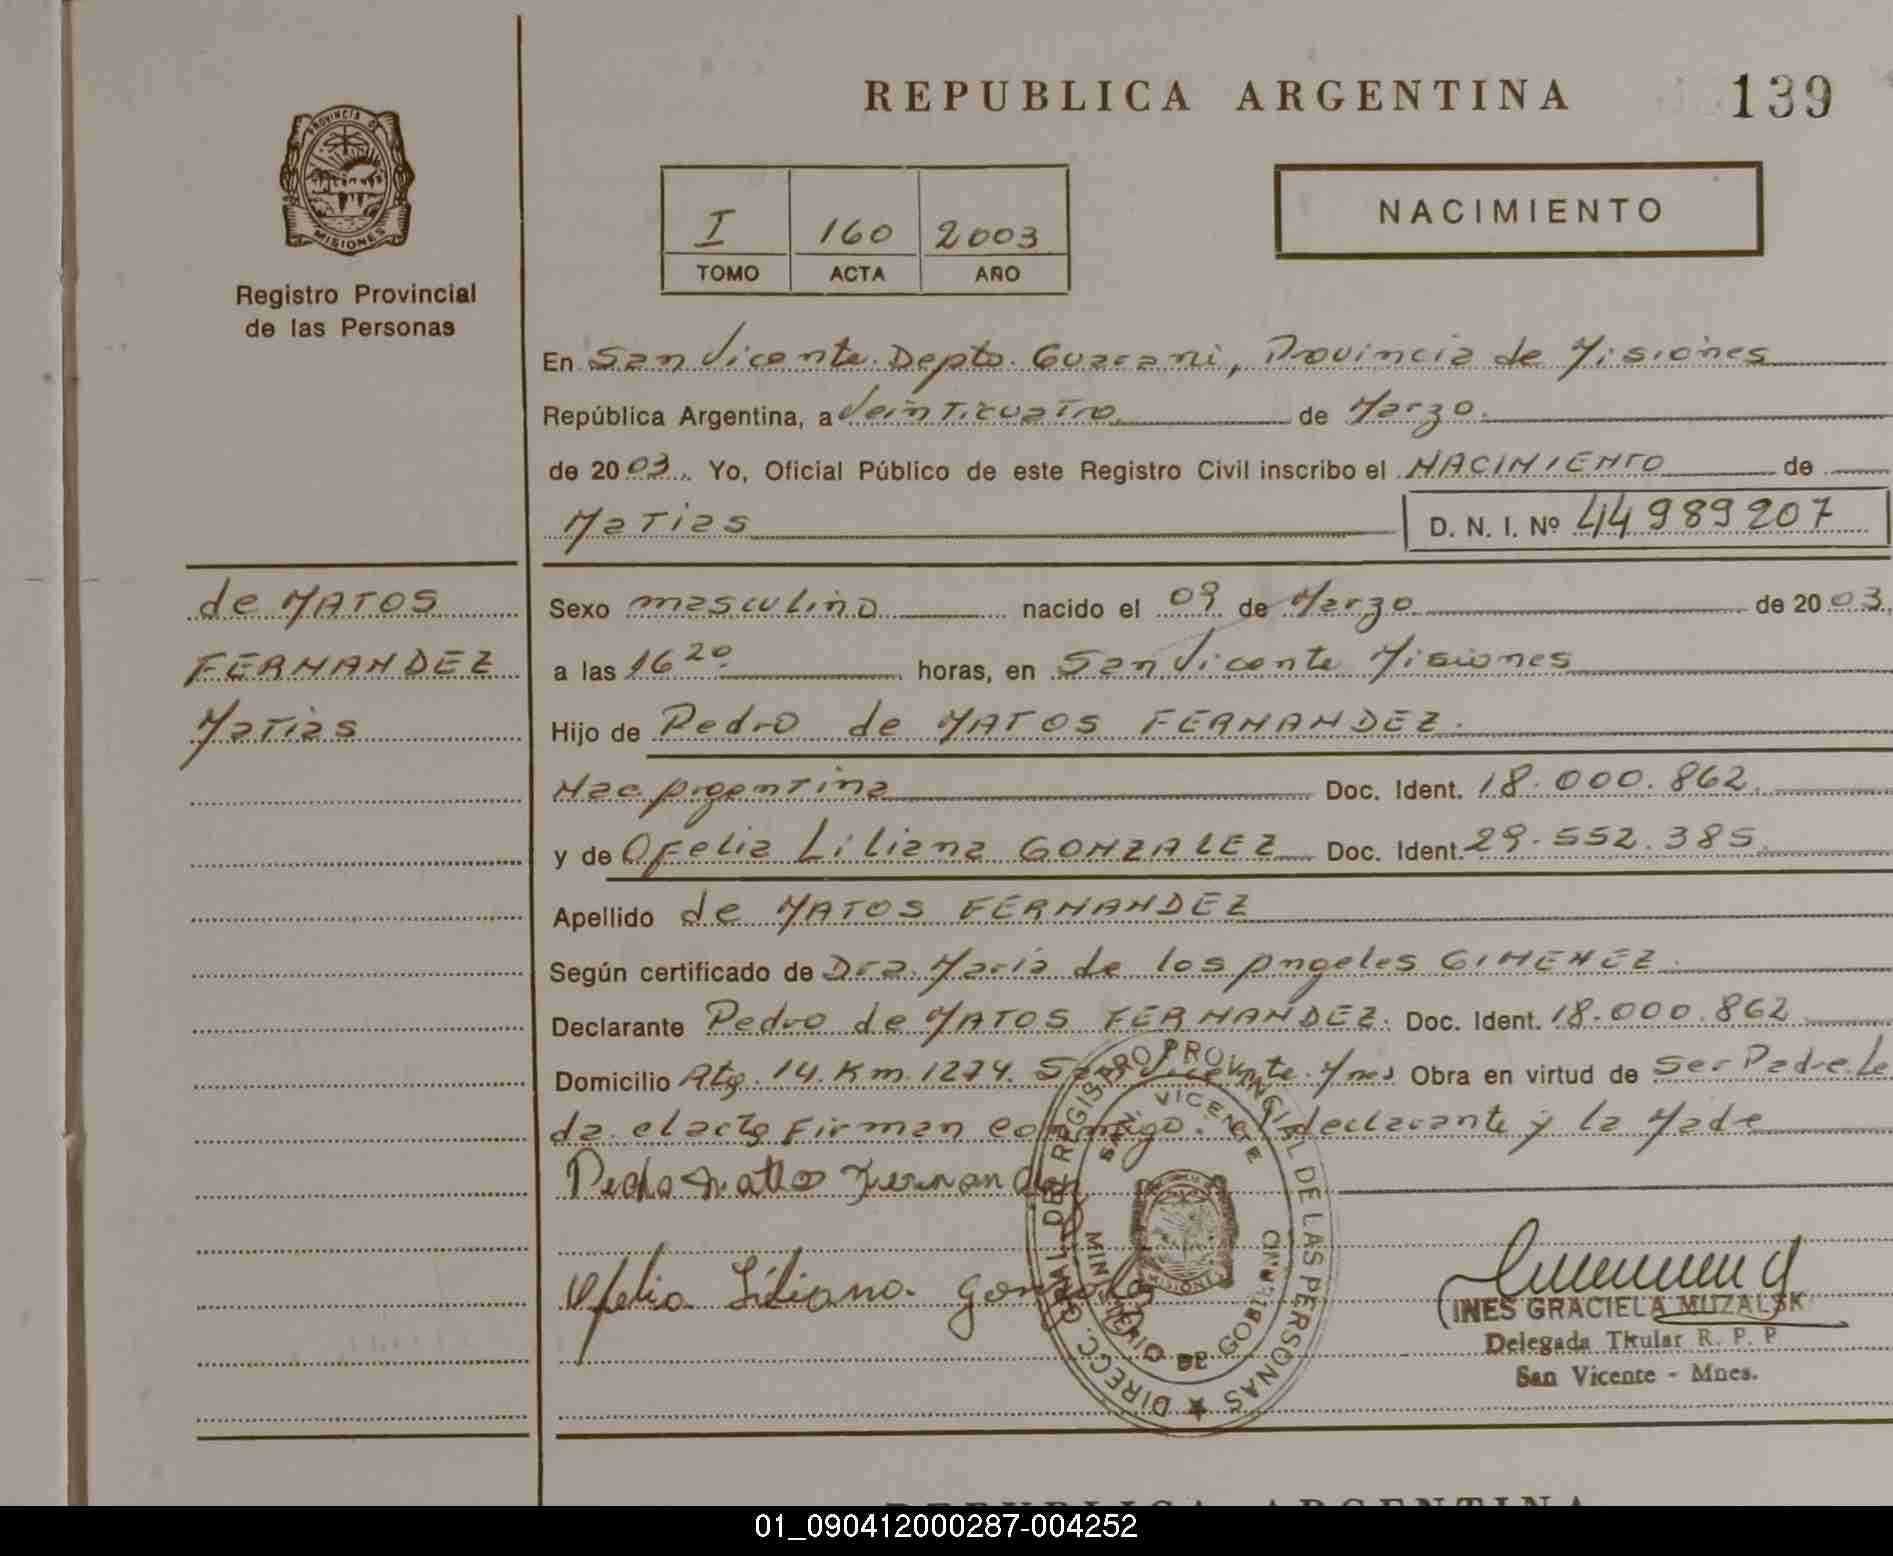 REPUBLICA ARGENTINA
139
PROVINCIA DE
MISIONES
Registro Provincial
de las Personas
I 160 2003
TOMO ACTA AÑO
NACIMIENTO
En San Vicente. Depto. Guarani, Provincia de Misiones
República Argentina, a Veinticuatro de Marzo.
de 2003. Yo, Oficial Público de este Registro Civil inscribo el NACIMIENTO de
Matias D. N. I. Nº 44989207
de MATOS
FERNANDEZ
Matias
Sexo masculino nacido el 09 de Marzo de 2003.
a las 16 20 horas, en San Vicente Misiones
Hijo de Pedro de MATOS FERNANDEZ.
Nac Argentina Doc. Ident. 18.000.862.
y de Ofelia Liliana GONZALEZ Doc. Ident. 29.552.385.
Apellido de MATOS FERNANDEZ
Según certificado de Dra. Maria de los Angeles GIMENEZ.
Declarante Pedro de MATOS FERNANDEZ. Doc. Ident. 18.000.862
Domicilio Rta. 14. Km. 1274. San Vicente. Mnes Obra en virtud de Ser Padre Le
da. el acta Firman conmigo. el declarante y la Made
Pedro Mattos Fernandes
Ofelia Liliana. Gonzalez
DIRECC. GRAL. DEL REGISTRO PROVINCIAL DE LAS PERSONAS
SAN VICENTE
MINISTERIO DE GOBIERNO
MISIONES
INES GRACIELA MUZALSK
Delegada Titular R. P. P
San Vicente - Mnes.
REPUBLICA ARGENTINA
01_090412000287-004252